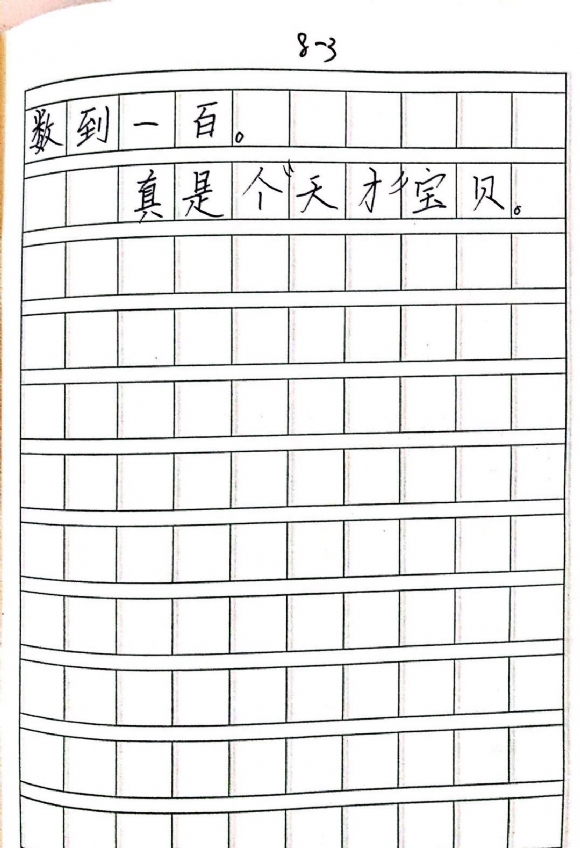 8-3
数到一百。
真是个“天才”宝贝。